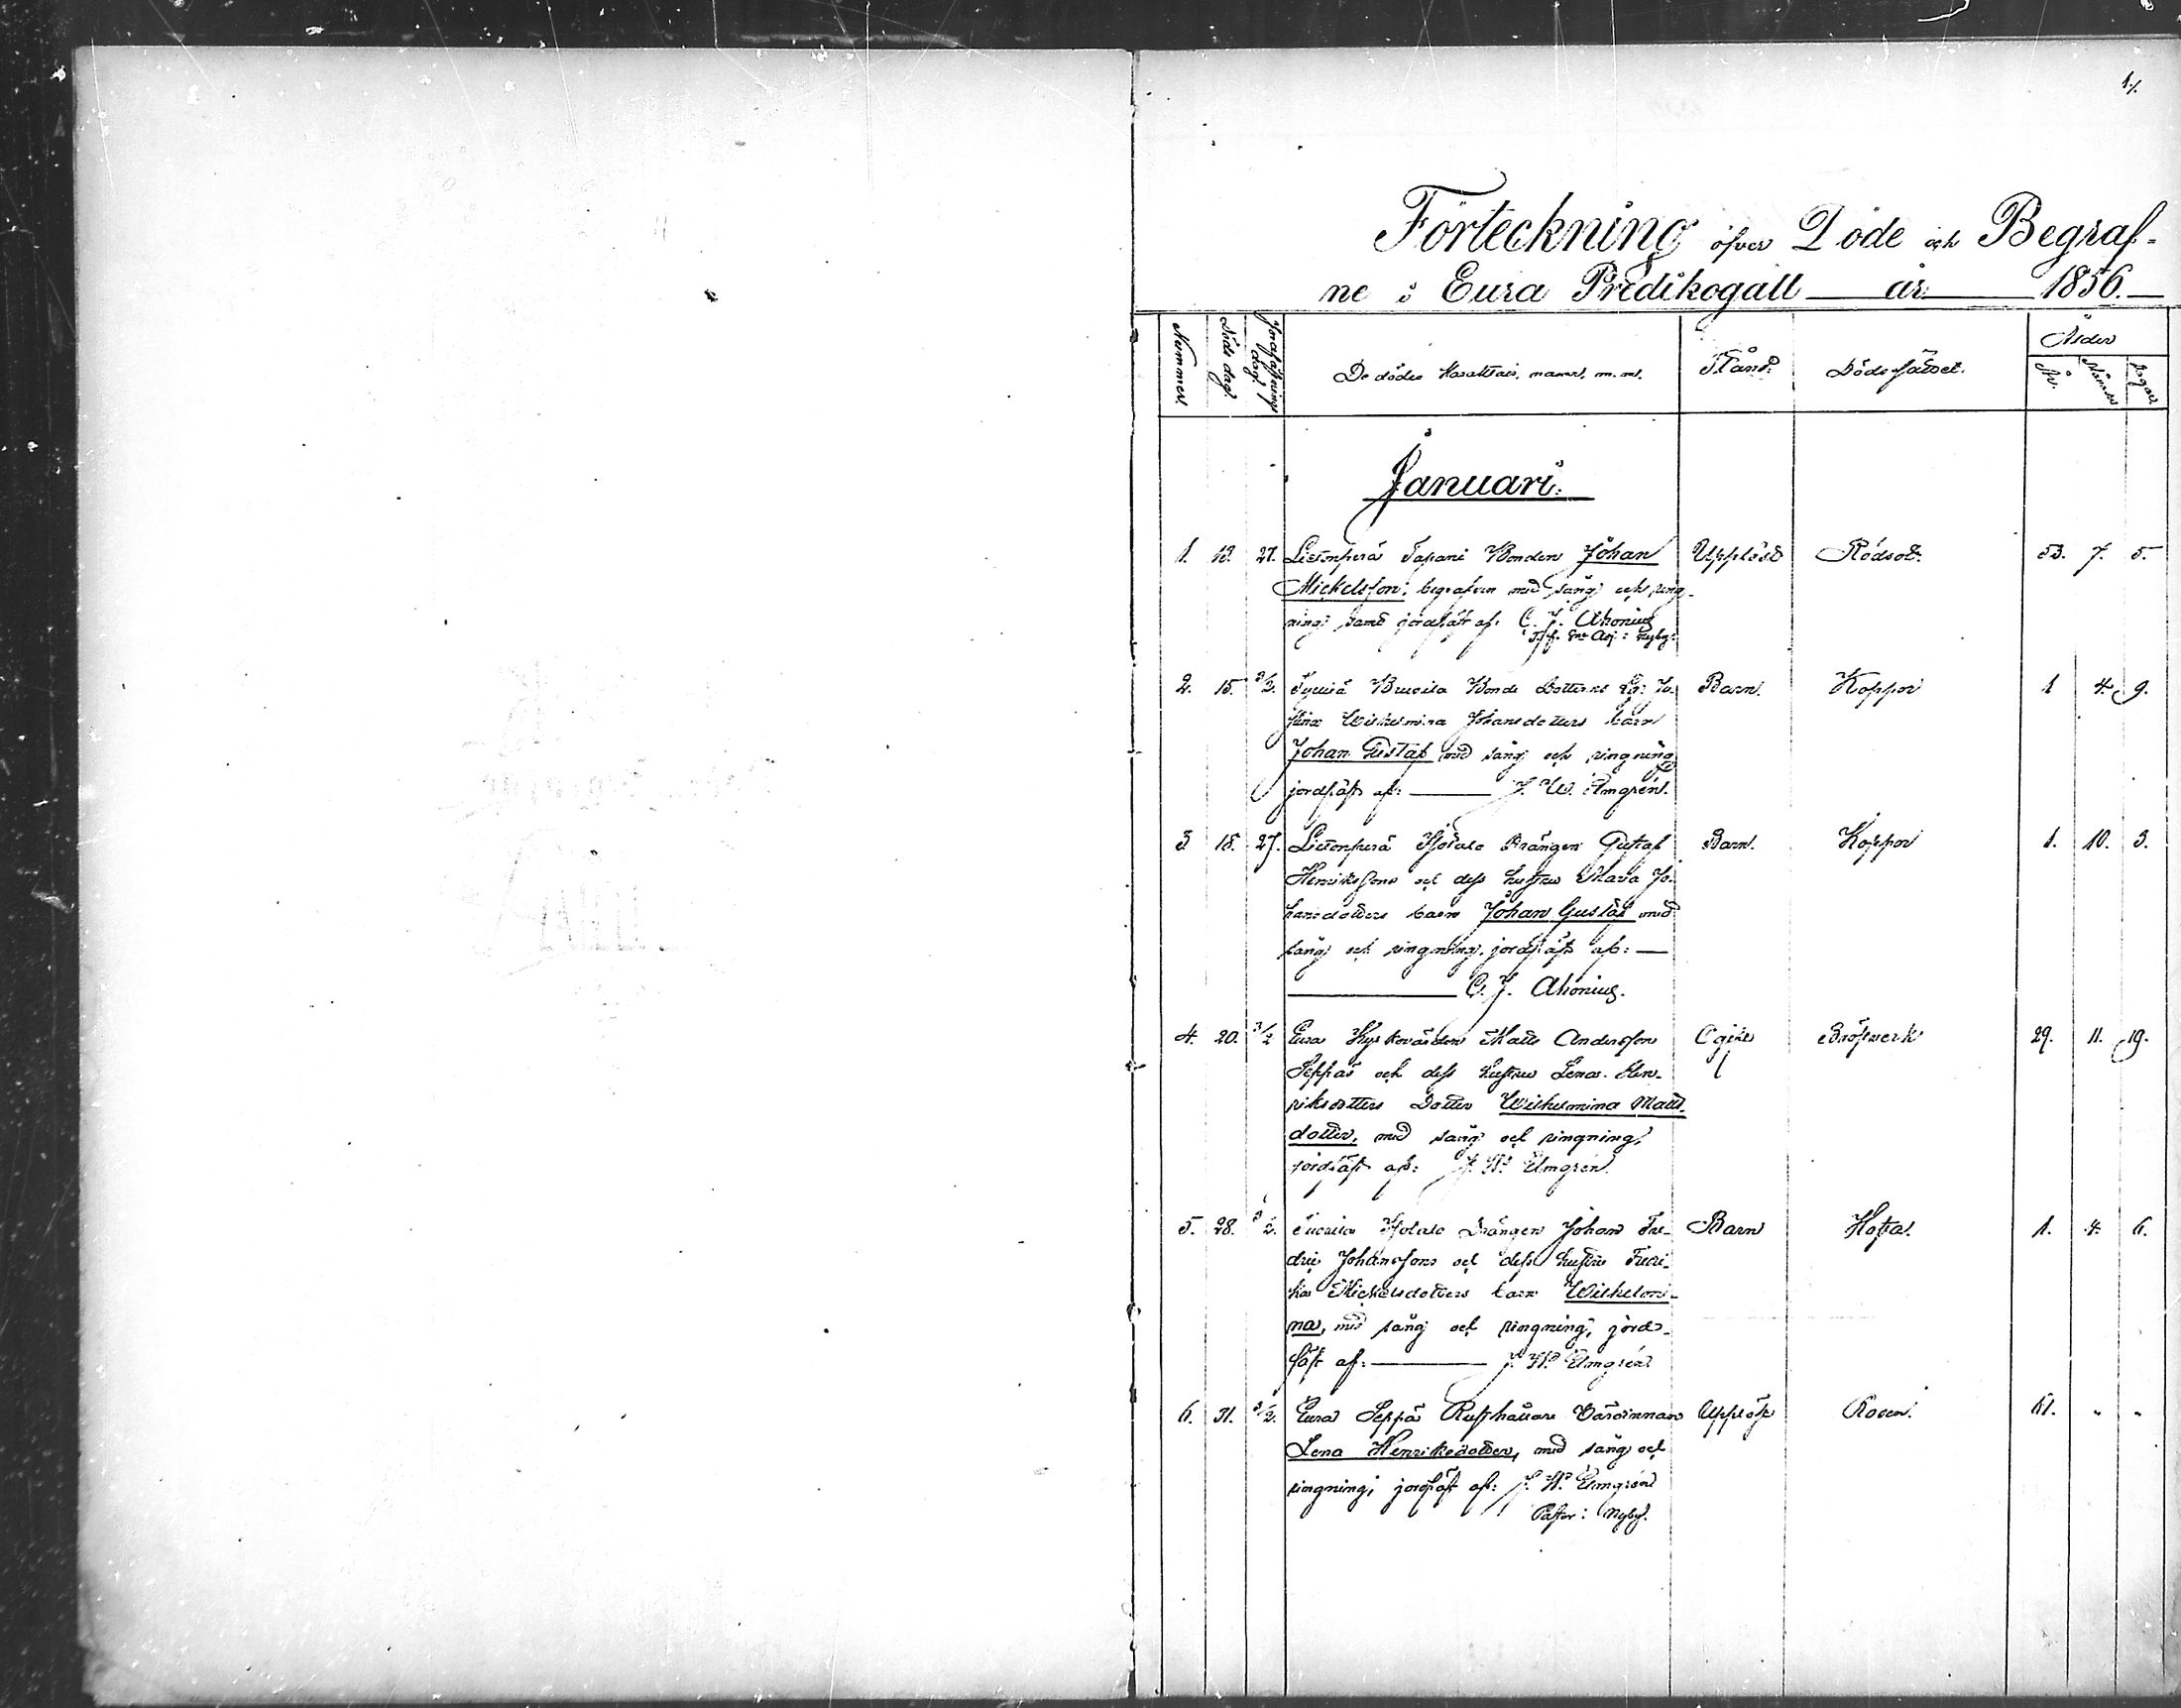 1/.
Förteckning öfver Döde och Begraf-
ne i Eura Predikogäll år 1856.
Nummer. Döds dag. Jordfästnings dag. De dödes Karaktair, namn, m.m. Stånd. Dödssättet. Ålder
År. Månader Dagar
Januari.
1. 13. 27. Lietonperä Tapani Bonden Johan Upplöst Rödsot. 53. 7. 5.
Mickelsson, begrafven med sång och ring-
ning samt jordfäst af: C. J. Ahonius
2. 15. 3/2. Bonde Dotterns Jo- Barn. Koppor 1 4. 9.
Wilhelmina Johansdotters barn
Johan Gustaf med sång och ringning
jordfäst af: J. W. Elmgrén.
3 18. 27. Lietonperä Drängen Gustaf Barn. Koppor 1. 10. 3.
Henrikssons och dess hustru Maria Jo-
hansdotters barn Johan Gustaf med
sång och ringning, jordfäst af:
C. J. Ahonius.
4. 20. 3/2 Eura Kyrkovärden Matts Andersson Ogift Bröstverk 29. 11. 19.
Seppäs och dess hustru Lena Hen-
riksdotters Dotter Wilhelmina Matts-
dotter, med sång och ringning,
jordfäst af: J. W. Elmgrén.
5. 28. 3/2. Drängen Johan Fre- Barn Hosta. 1. 4. 6.
dric Johanssons och dess hustru Fredri-
ka Mickelsdotters barn Wilhelmi-
na, med sång och ringning, jord-
fäst af: J. W. Elmgrén
6. 31. 3/2. Eura Seppä Rusthållare Värdinnan Upplöst Rosen. 61. " "
Lena Henriksdotter, med sång och
ringning, jordfäst af: J. W. Elmgrén
Pastor: